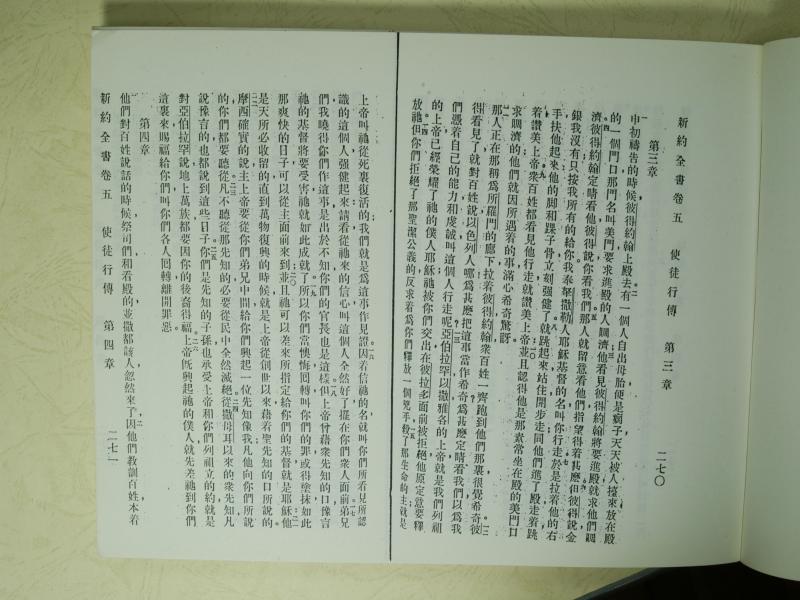 新約全書卷五 使徒行傳 第三章 二七〇
第三章
申初禱告的時候彼得約翰上殿去有一個人自出母胎便是瘸子天天被人擡來放在殿
的一個門口那門名叫美門要求進殿的人賙濟他看見彼得約翰將要進殿就求他們賙
濟彼得約翰定睛看他彼得說你看我們那人就留意看他們指望得着甚麼但彼得說金
銀我沒有只按我所有的給你我奉拏撒勒人耶穌基督的名叫你行走於是拉着他的右
手扶他起來他的脚和踝子骨立刻强健了就跳起來站住開步走同他們進了殿走着跳
着讚美上帝衆百姓都看見他行走就讚美上帝並且認得他是那素常坐在殿的美門口
求賙濟的他們就因所遇着的事滿心希奇驚訝
那人正在那稱爲所羅門的廊下拉着彼得約翰衆百姓一齊跑到他們那裏很覺希奇彼
得看見了就對百姓說以色列人哪爲甚麼把這事當作希奇爲甚麼定睛看我們以爲我
們憑着自己的能力和虔誠叫這個人行走呢亞伯拉罕以撒雅各的上帝就是我們列祖
的上帝已經榮耀了祂的僕人耶穌祂被你們交出在彼拉多面前被拒絕他原定意要釋
放祂但你們拒絕了那聖潔公義的反求着爲你們釋放一個兇手殺了那生命的主就是
上帝叫祂從死裏復活的我們就是爲這事作見證因着信祂的名就叫你們所看見所認
識的這個人强健起來請看從祂來的信心叫這個人全然好了擺在你們衆人面前弟兄
們我曉得你們作這事是出於不知你們的官長也是這樣但上帝曾藉衆先知的口豫言
祂的基督將要受害祂就如此成就了所以你們當懊悔囘轉叫你們的罪或得塗抹如此
那爽快的日子可以從主面前來到並且祂可以差來所指定給你們的基督就是耶穌他
是天所必收留的直到萬物復興的時候就是上帝從創世以來藉着聖先知的口所說的
摩西確實的說主上帝要從你們弟兄中間給你們興起一位先知像我凡他向你們所說
的你們都要聽從凡不聽從那先知的必要從民中全然滅絕從撒母耳以來的衆先知凡
說豫言的也都說到這些日子你們是先知的子孫也承受上帝和你們列祖立的約就是
對亞伯拉罕說地上萬族都要因你的後裔得福上帝旣興起祂的僕人就先差祂到你們
這裏來賜福給你們叫你們各人囘轉離開罪惡
第四章
他們對百姓說話的時候祭司們和看殿的並撒都該人忽然來了因他們教訓百姓本着
新約全書卷五 使徒行傳 第四章 二七一